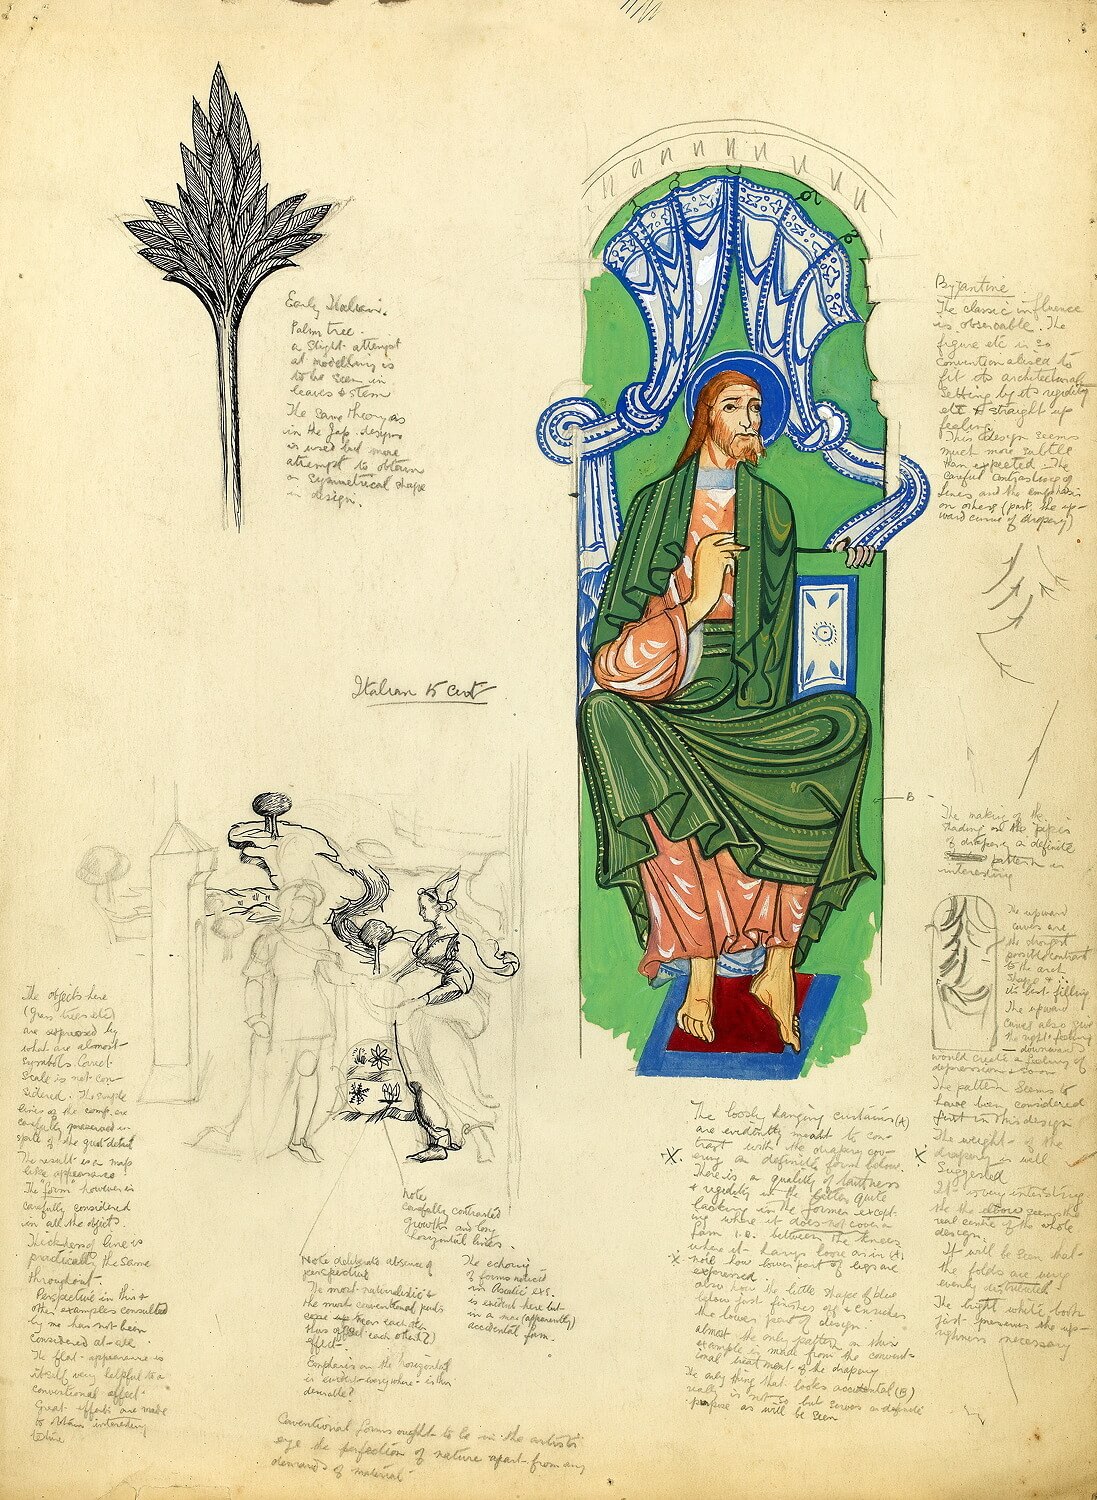 Early Italian.
Palm tree.
a slight attempt
at modelling is
to be seen in
leaves & stem
The same theory as
in the Jap. designs
is used but more
attempt to obtain
a symmetrical shape
in design.
Byzantine
The classic influence
is observable. The
figure etc is so
conventionalised to
fit its architectural
setting by its rigidity
etc & straight up
feeling.
This design seems
much more subtle
than expected. The
careful contrasting of
lines and the emphasis
on others (part. the up-
ward curve of drapery)
Italian 15 cent
B
The making of the
shading on the pipes
of drapery a definite
pattern is
interesting
The upward
curves are
the strongest
possible contrast
to the arch
shape &
its best filling
The upward
curves also give
the right feeling
downwards
would create a feeling of
depression & sorrow
The pattern seems to
have been considered
first in this design
The weight of the
drapery is well
suggested
It is very interesting
the elbow seems the
real centre of the whole
design.
It will be seen that
the folds are very
evenly distributed
The light white book
just preserves the up-
rightness necessary
The objects here
(grass trees etc)
are expressed by
what are almost
symbols. Correct
scale is not con-
sidered. The simple
lines of the comp. are
carefully preserved in
spite of the great detail
The result is a map
like appearance
The "form" however is
carefully considered
in all the objects.
Thickness of line is
practically the same
throughout.
Perspective in this &
other examples consulted
by me has not been
considered at all.
The flat appearance is
itself very helpful to a
conventional effect.
Great efforts are made
to obtain interesting
outline
Note
carefully contrasted
growths and long
horizontal lines.
Note deliberate absence of
perspective
The most naturalistic &
the most conventional parts
come near each other
thus affect each other?)
effect.
Emphasis on the horizontal
is evident everywhere - is this
desirable?
The echoing
of forms noticed
in Asiatic exs.
is evident here but
in a more (apparently)
accidental form.
Conventional forms ought to be in the artists
eye the perfection of nature apart from any
demands of material
The loosely hanging curtains (A)
are evidently meant to con-
trast with the drapery cov-
ering a definite form below.
There is a quality of tautness
& rigidity in the latter quite
lacking in the former except
where it does not cover a
form i.e. between the knees
where it hangs loose as in (A)
X note how lower part of legs are
expressed
also how the little shape of blue
below just finishes off & encloses
the lower part of design.
almost the only pattern in this
example is made from the conven-
tional treatment of the drapery
The only thing that looks accidental (B)
really is not so but serves a definite
purpose as will be seen